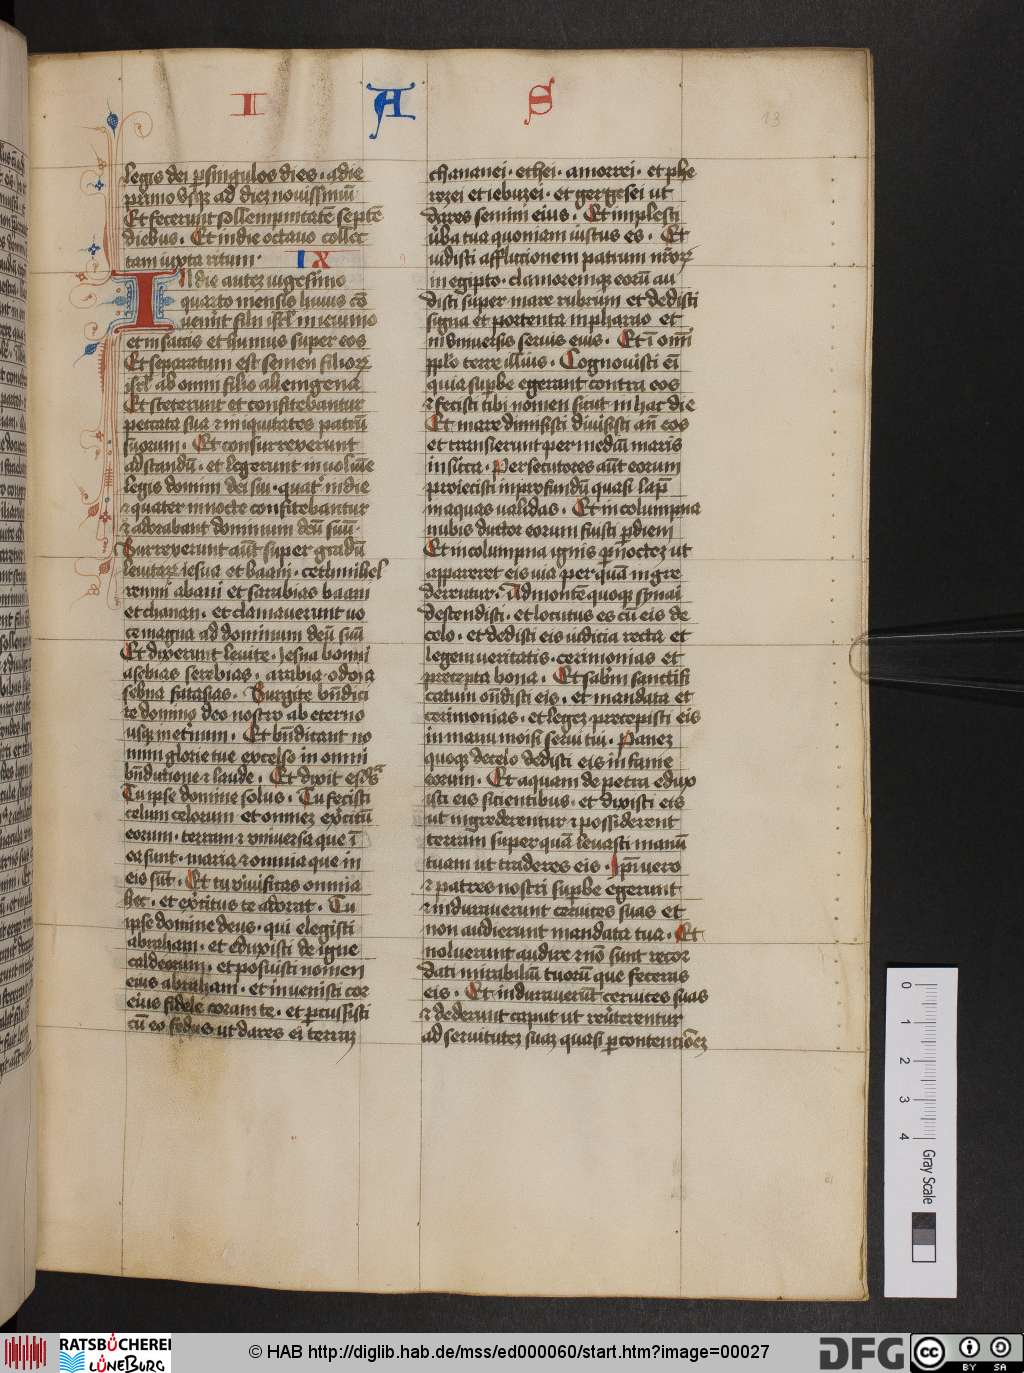 I A S
13
legis dei ꝑ singulos dies · a die
primo vsqꝫ ad diez nouissimū
Et fecerunt sollempnitatē septē
diebus . Et in die octauo collec
tam iuxta ritum · IX
In die autez uigesimo
quarto mensis huius cō
uenīt filii isrl̄ in ieiunio
et in saccis et humus super eos
Et separatum est semen filioꝝ
isrl̄ ab omni filio alienigena
Et steterunt et confitebantur
peccata sua ⁊ iniquitates patrū
suorum . Et consurrexerunt
ad standū · et legerunt in volūīe
legis domini dei sui · quat᷑ in die
⁊ quater in nocte confitebantur
⁊ adorabant dominum deū suū
Surrexerunt aūt super gradū
leuitaꝝ iesua et baani · cethmihel
remni abani et sarabias baani
et chanan · et clamauerunt uo
ce magna ad dominum deū suū
Et dixerunt leuite · Iesua bonni
asebias serebias · arabia odoia
sebna fatasias . Surgite bn̄dici
te domino deo nostro ab eterno
usqꝫ in et᷑num . Et bn̄dicant no
mini glorie tue excelso in omni
bn̄dictione ⁊ laude . Et dixit esdᵃs
Tu ipse domine solus . Tu fecisti
celum celorum et omnez ex̄citū
eorum · terram ⁊ vniuersa que ī
ea sunt · maria ⁊ omnia que in
eis sūt . Et tu viuificas omnia
hec · et ex̄citus te adorat . Tu
ipse domine deus · qui elegisti
abraham · et eduxisti de igne
caldeorum · et posuisti nomen
eius abraham · et inuenisti cor
eius fidele coram te · et ꝑcussisti
cū eo fedus ut dares ei terraz
chananei · ethei · amorrei · et phe
rezei et iebuzei · et gergesei ut
dares semini eius . Et implesti
ūba tua quoniam iustus es . Et
uidisti afflictionem patrum nr̄oꝝ
in egipto · clamoremqꝫ eorū au
disti super mare rubrum et dedisti
signa et portenta in pharao et
in vniuersis seruis euis . Et ī omī
pplo terre illius . Cognouisti eī
quia suꝑbe egerant contra eos
⁊ fecisti tibi nomen sicut in hac die
Et mare dimisisti diuisisti an̄ eos
et transierunt per mediū maris
in sicca · Persecutores aūt eorum
proiecisti in profundū quasi lapī
in aquas ualidas . Et in columpna
nubis ductor eorum fuisti ꝑ diem
Et in columpna ignis ꝑ noctez ut
appareret eis uia per quā ingre
derentur . Ad montē quoqꝫ synai
descendisti · et locutus es cū eis de
celo · et dedisti eis iudicia recta et
legem ueritatis · cerimonias et
precepta bona . Et sabm̄ sanctifi
catum on̄disti eis · et mandata et
cerimonias · et legez precepisti eis
in manu moisi serui tui . Panez
quoqꝫ de celo dedisti eis in fame
eorum . Et aquam de petra edux
isti eis sicientibus · et dixisti eis
ut ingrederentur ⁊ possiderent
terram super quā leuasti manū
tuam ut traderes eis . Ipī uero
⁊ patres nostri suꝑbe egerunt
⁊ indurauerunt ceruices suas et
non audierunt mandata tua . Et
noluerunt audire ⁊ nō sunt recor
dati mirabiliū tuorū que feceras
eis . Et indurauerūt ceruices suas
⁊ dederunt caput ut reūterentur
ad seruitutez suaz quasi ꝑ contencōez
0
1
2
3
4
Gray Scale
RATSBÜCHEREI
LÜNEBURG
© HAB http://diglib.hab.de/mss/ed000060/start.htm?image=00027
DFG
cc
BY SA